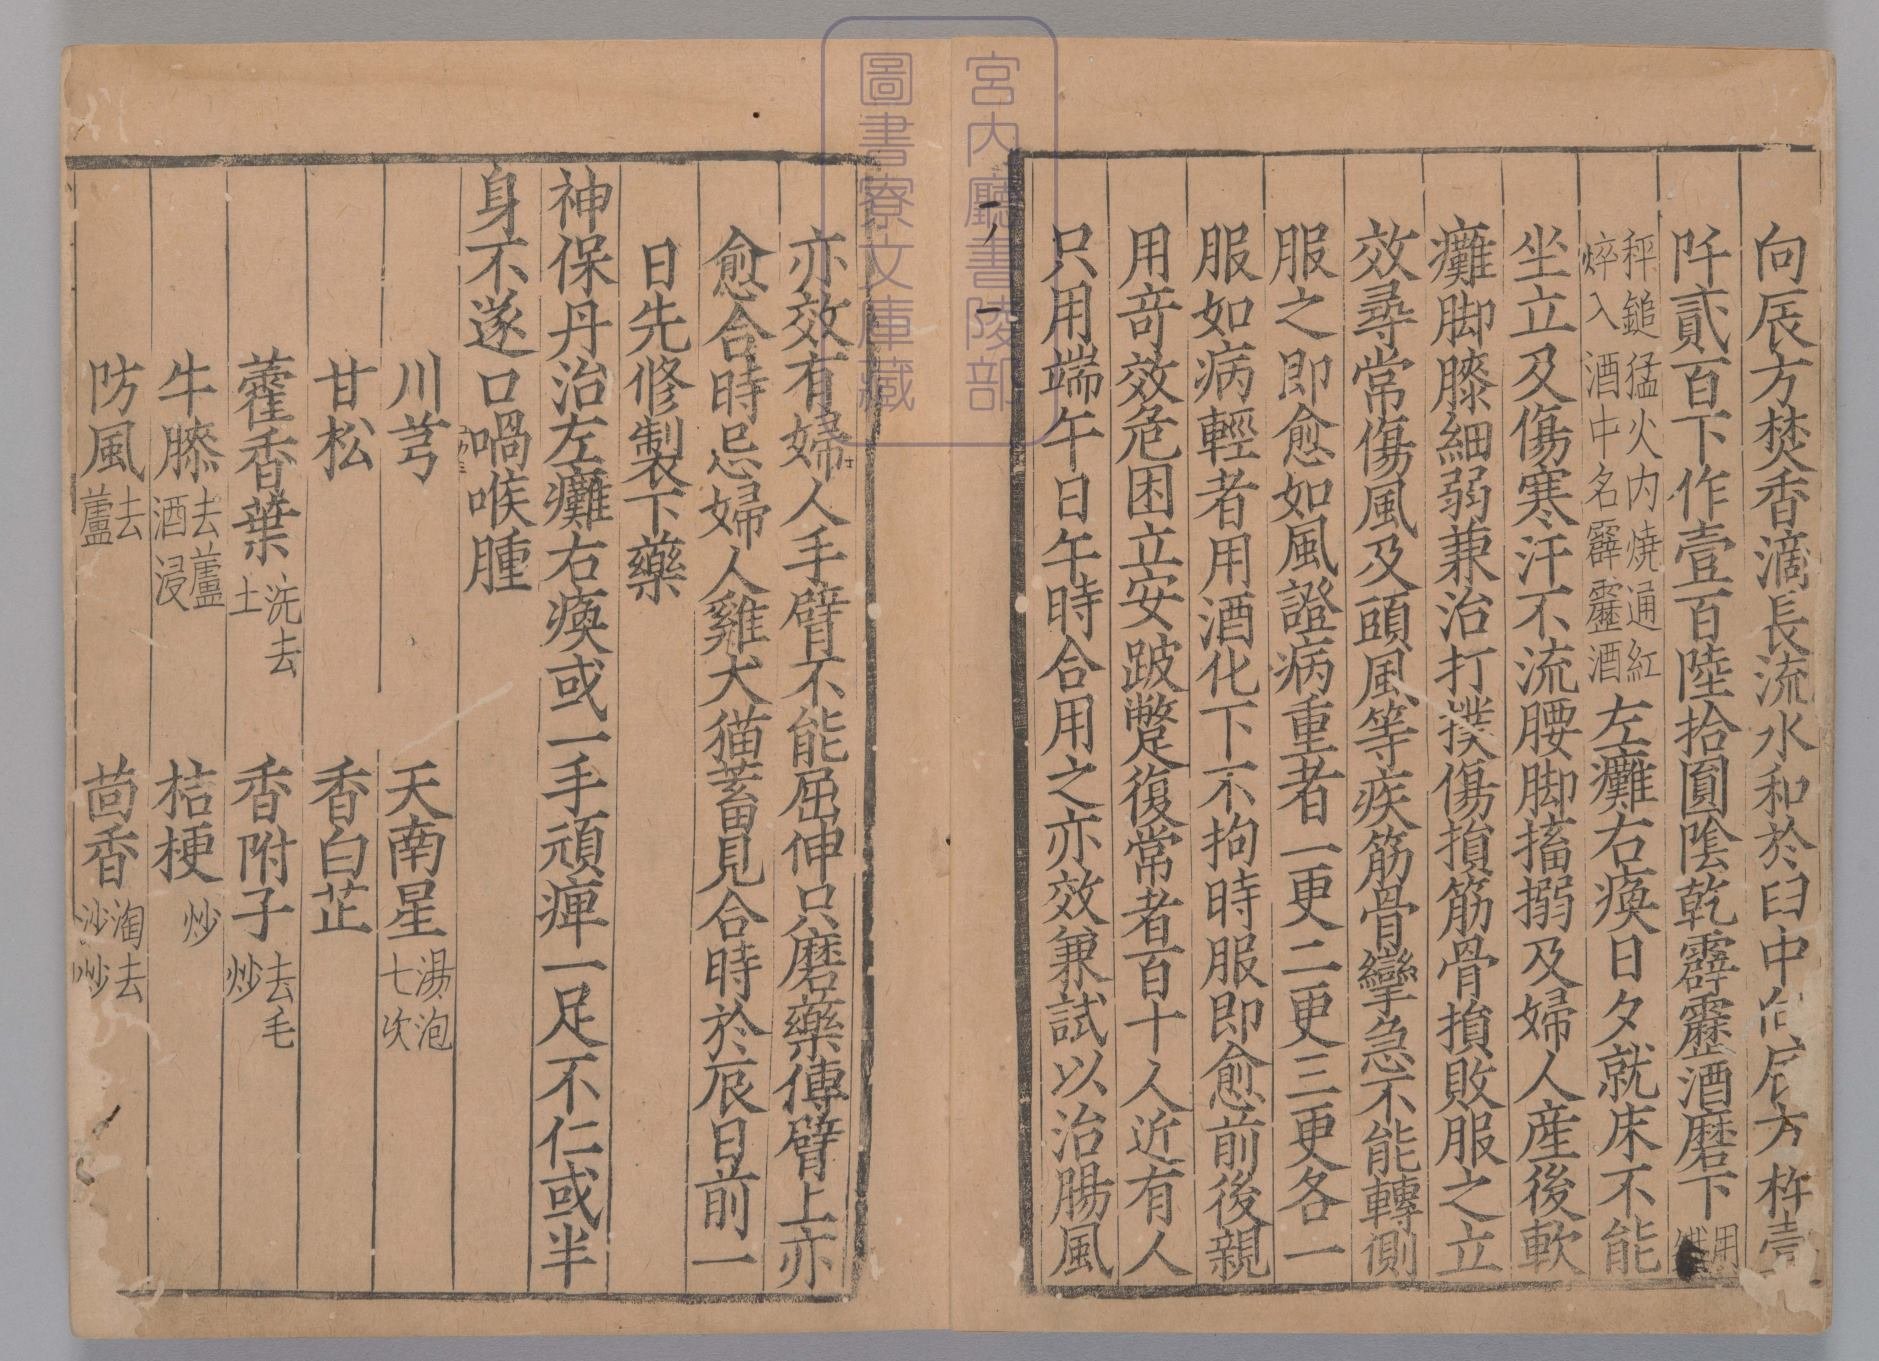 向辰方焚香滴長流水和於臼中 方杵壹
阡貳百下作壹百陸拾圓隂乾霹靂酒磨下用
秤鎚猛火内燒通紅
焠入酒中名霹靂酒
左癱右瘓日夕就床不能
坐立及傷寒汗不流腰脚搐搦及婦人産後軟
癱脚膝細弱兼治打撲傷損筋骨損敗服之立
效尋常傷風及頭風等疾筋骨攣急不能轉側
服之即愈如風證病重者一更二更三更各一
服如病輕者用酒化下不拘時服即愈前後親
用竒效危困立安跛躄復常者百十人近有人
只用端午日午時合用之亦效兼試以治腸風
亦效有婦人手臂不能屈伸只磨藥傅臂上亦
愈合時忌婦人雞犬猫畜見合時於辰日前一
日先修製下藥
神保丹治左癱右瘓或一手頑痺一足不仁或半
身不遂口喎喉腫
川芎 天南星湯泡七次
甘松 香白芷
藿香葉洗去土 香附子去毛炒
牛膝去蘆酒浸 桔梗炒
防風去蘆 茴香淘去沙炒
宮内廳書陵部
圖書寮文庫藏